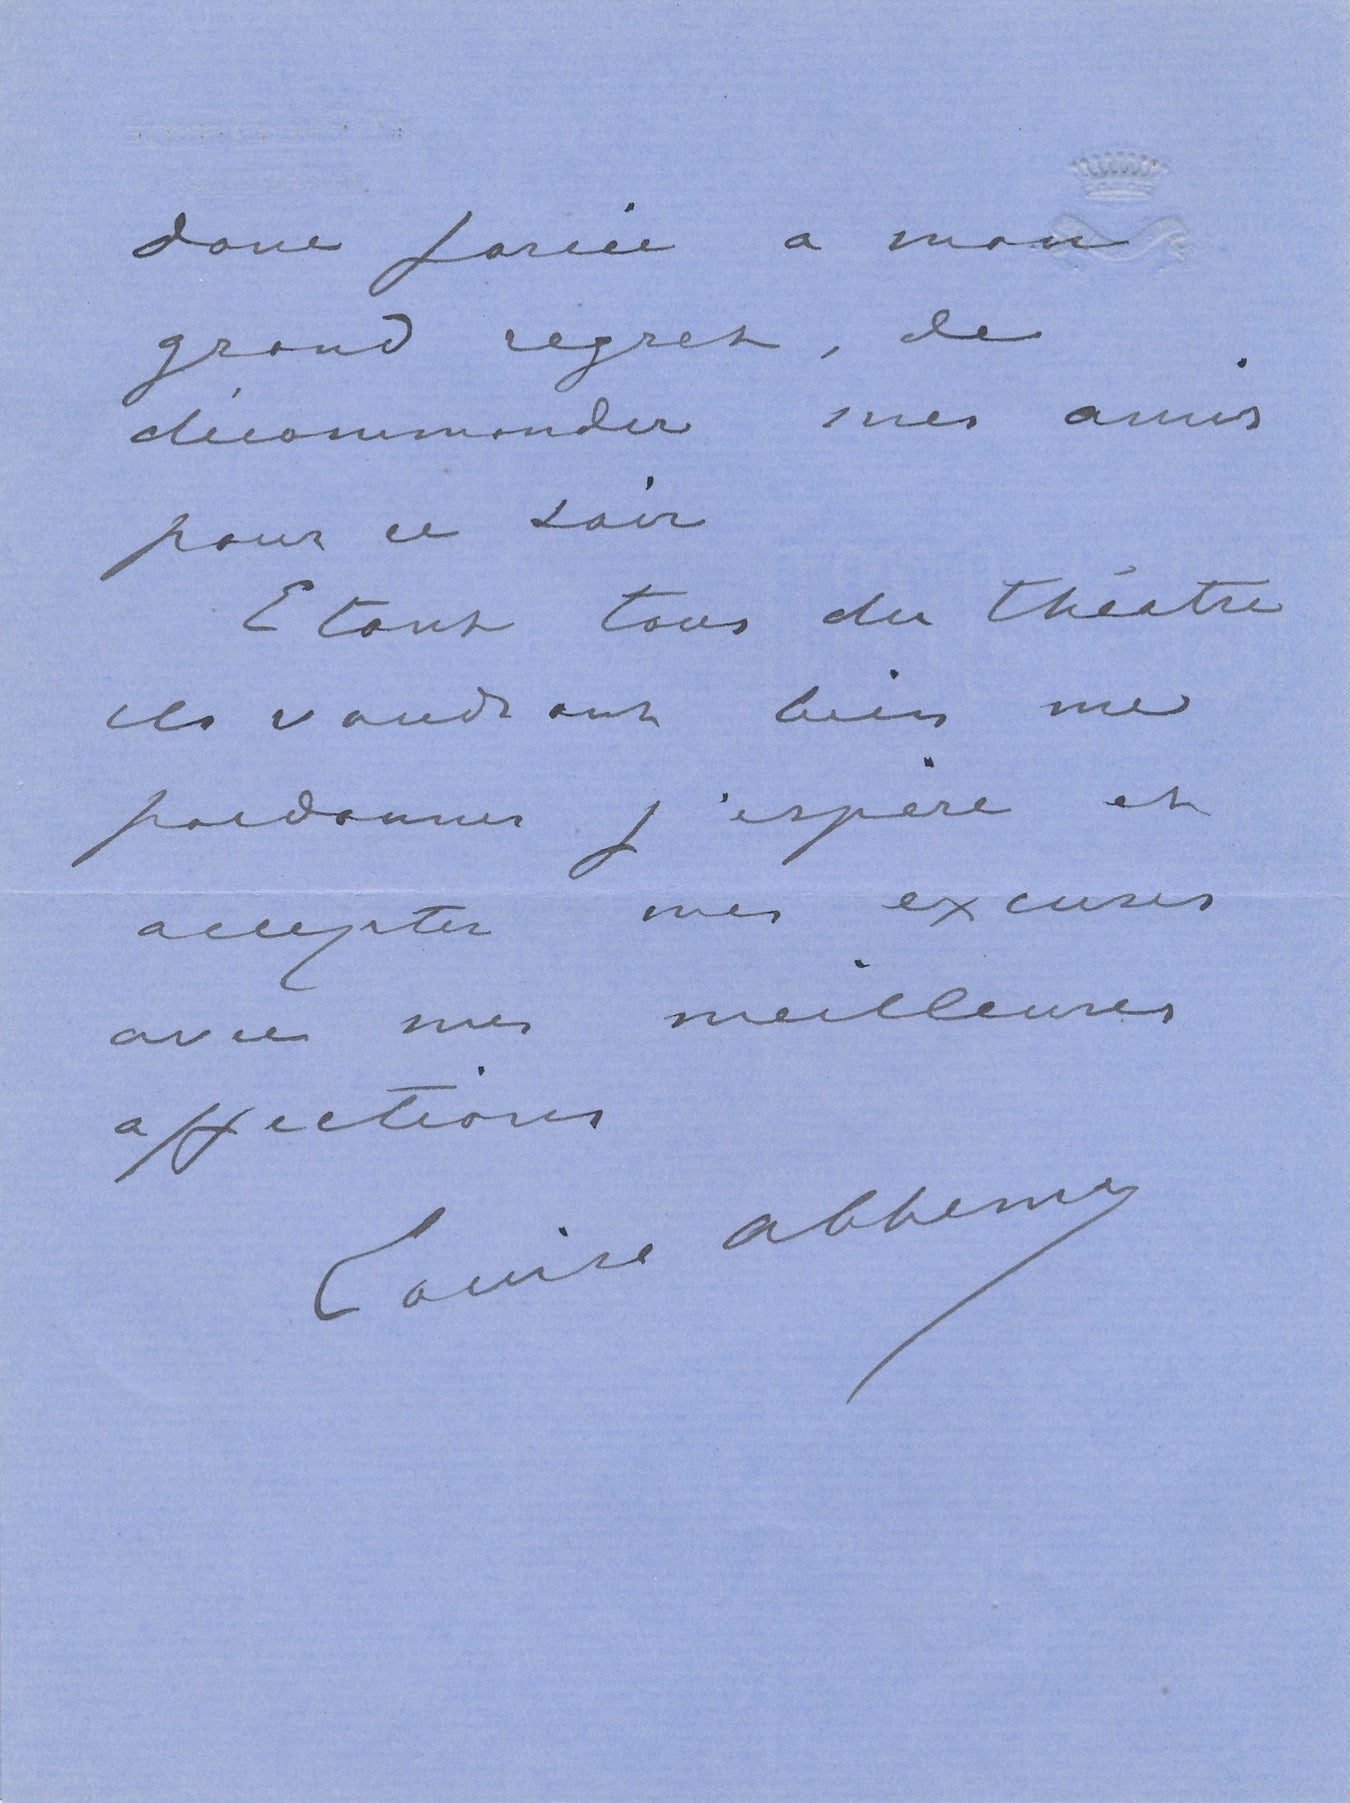 donc forcée a mon
grand regret, de
décommander mes amis
pour ce soir
Etant tous du théatre
ils voudront bien me
pardonner j'espère et
accepter mes excuses
avec mes meilleures
affections
Louise Abbema